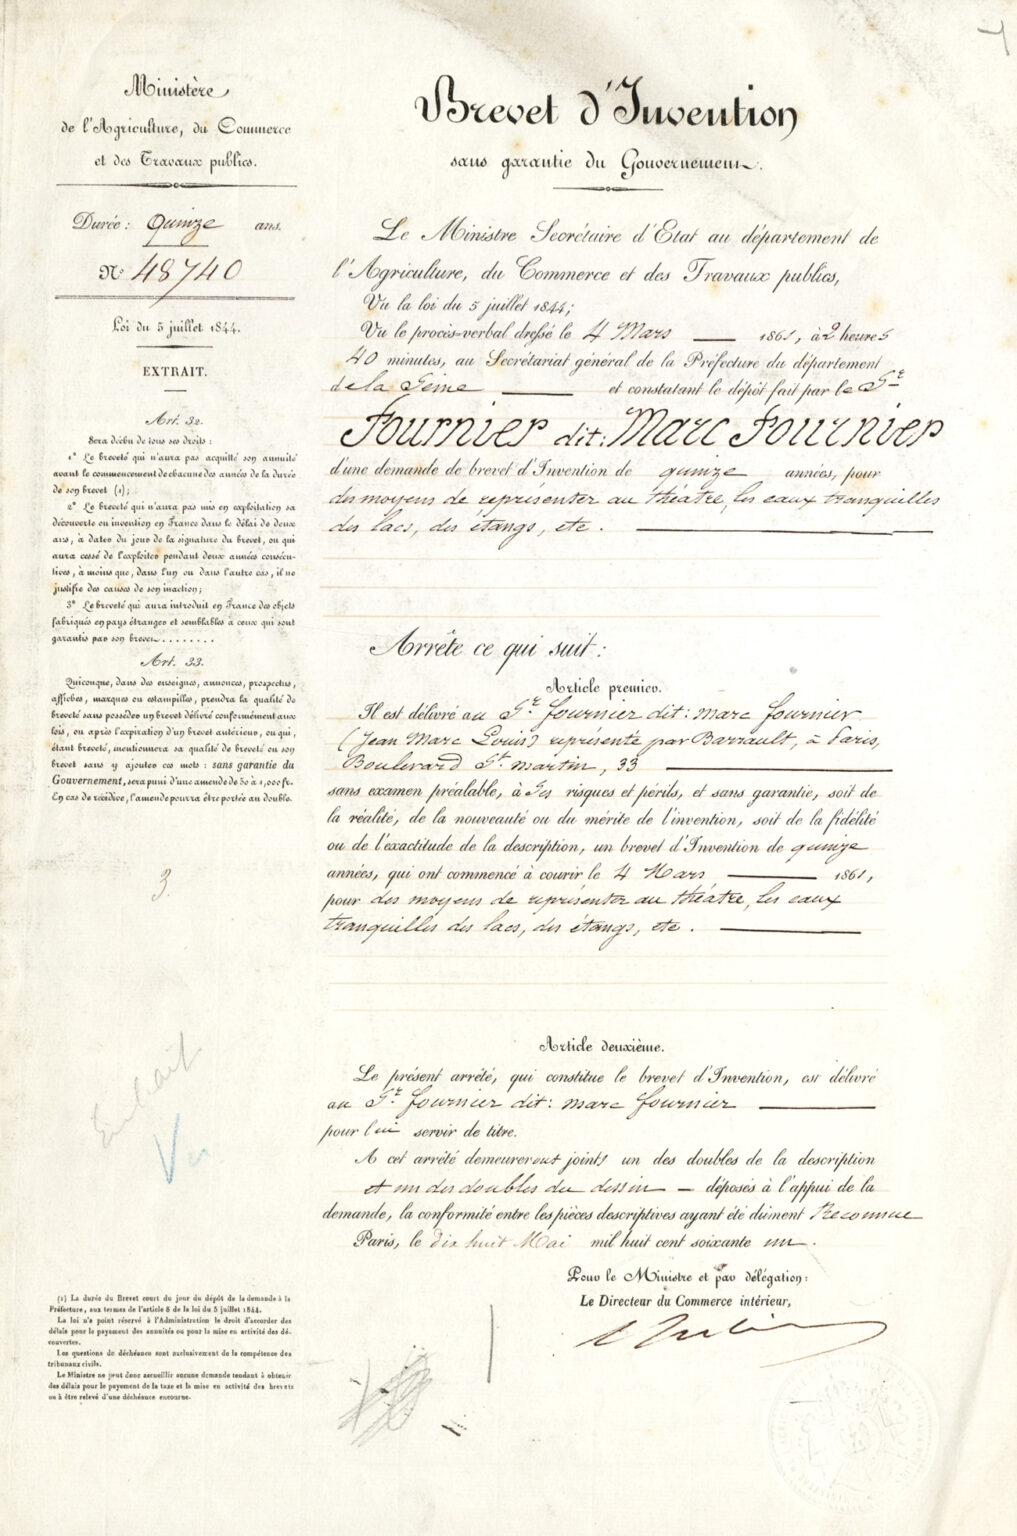 Ministère
de l'Agriculture, du Commerce
et des Travaux publics.
Durée : Quinze ans.
N° 48740
Loi du 5 juillet 1844.
EXTRAIT.
Art. 32.
Sera déchu de tous ses droits :
1° Le breveté qui n'aura pas acquitté son annuité
avant le commencement de chacune des années de la durée
de son brevet (1) ;
2° Le breveté qui n'aura pas mis en exploitation sa
découverte ou invention en France dans le délai de deux
ans, à dater du jour de la signature du brevet, ou qui
aura cessé de l'exploiter pendant deux années consécu-
tives, à moins que, dans l'un ou dans l'autre cas, il ne
justifie des causes de son inaction ;
3° Le breveté qui aura introduit en France des objets
fabriqués en pays étranger et semblables à ceux qui sont
garantis par son brevet........
Art. 33.
Quiconque, dans des enseignes, annonces, prospectus,
affiches, marques ou estampilles, prendra la qualité de
breveté sans posséder un brevet délivré conformément aux
lois, ou après l'expiration d'un brevet antérieur, ou qui,
étant breveté, mentionnera sa qualité de breveté ou son
brevet sans y ajouter ces mots : sans garantie du
Gouvernement, sera puni d'une amende de 50 à 1,000 fr.
En cas de récidive, l'amende pourra être portée au double.
3.
(1) La durée du Brevet court du jour du dépôt de la demande à la
Préfecture, aux termes de l'article 8 de la loi du 5 juillet 1844.
La loi n'a point réservé à l'Administration le droit d'accorder des
délais pour le payement des annuités ou pour la mise en activité des dé-
couvertes.
Les questions de déchéance sont exclusivement de la compétence des
tribunaux civils.
Le Ministre ne peut donc accueillir aucune demande tendant à obtenir
des délais pour le payement de la taxe et la mise en activité des brevets
ou à être relevé d'une déchéance encourue.
Brevet d'Invention
sans garantie du Gouvernement.
Le Ministre Secrétaire d'État au département de
l'Agriculture, du Commerce et des Travaux publics,
Vu la loi du 5 juillet 1844 ;
Vu le procès-verbal dressé le 4 Mars 1861, à 2 heures
40 minutes, au Secrétariat général de la Préfecture du département
de la Seine et constatant le dépôt fait par le Sr
Fournier dit: Marc Fournier
d'une demande de brevet d'Invention de quinze années, pour
des moyens de représenter au théâtre, les eaux tranquilles
des lacs, des étangs, etc.
Arrête ce qui suit :
Article premier.
Il est délivré au Sr fournier dit: marc fournier
(Jean Marc Louis) représenté par Barrault, à Paris,
Boulevard St martin, 33
sans examen préalable, à ses risques et périls, et sans garantie, soit de
la réalité, de la nouveauté ou du mérite de l'invention, soit de la fidélité
ou de l'exactitude de la description, un brevet d'Invention de quinze
années, qui ont commencé à courir le 4 Mars 1861,
pour des moyens de représenter au théâtre, les eaux
tranquilles des lacs, des étangs, etc.
Article deuxième.
Le présent arrêté, qui constitue le brevet d'Invention, est délivré
au Sr fournier dit: marc fournier
pour lui servir de titre.
A cet arrêté demeureront joints un des doubles de la description
et un des doubles du dessin déposés à l'appui de la
demande, la conformité entre les pièces descriptives ayant été dûment Reconnue
Paris, le dix huit Mai mil huit cent soixante un.
Pour le Ministre et par délégation :
Le Directeur du Commerce intérieur,